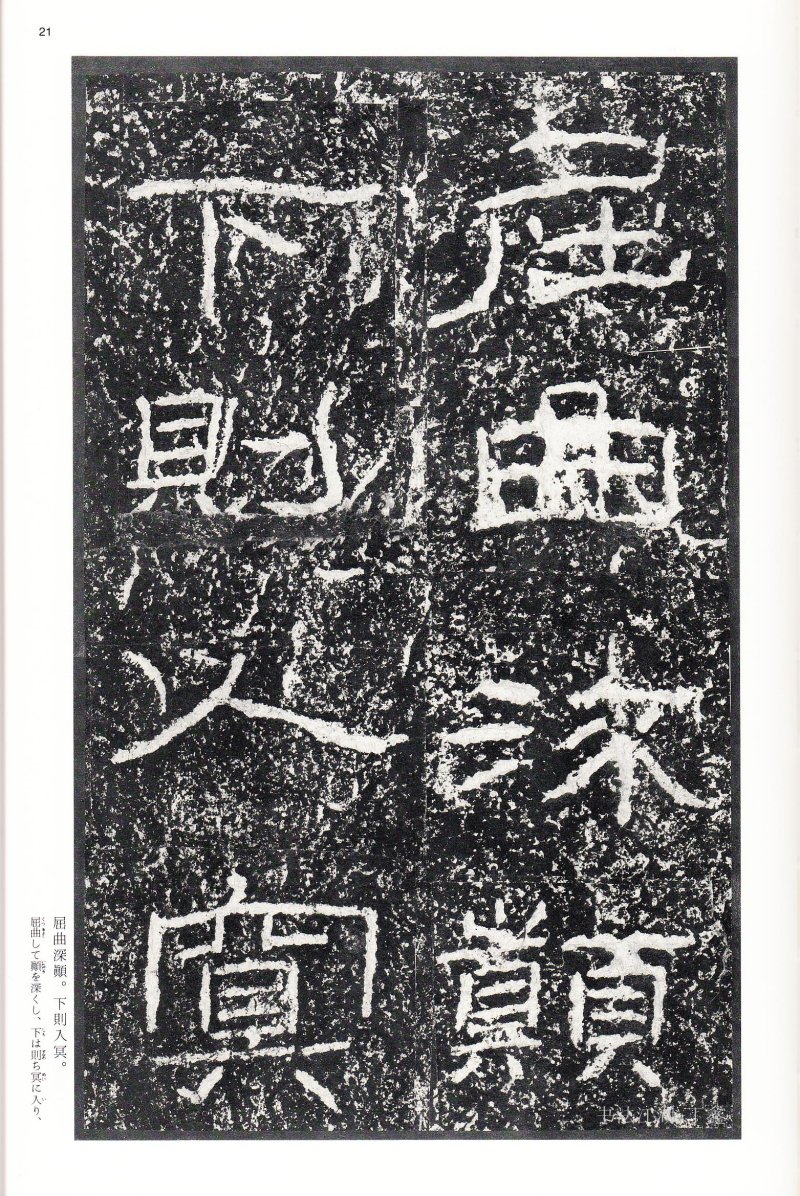 21
屈曲深顚
下則入冥
屈曲深顚。下則入冥。
屈曲して顚を深くし、下は則ち冥に入り、